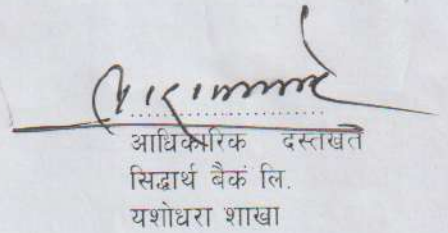 आधिकारिक दस्तखत
सिद्धार्थ बैकं लि.
यशोधरा शाखा